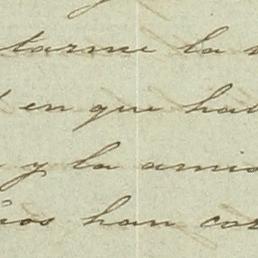 tarme la
en que hab
y la amis
ios han con